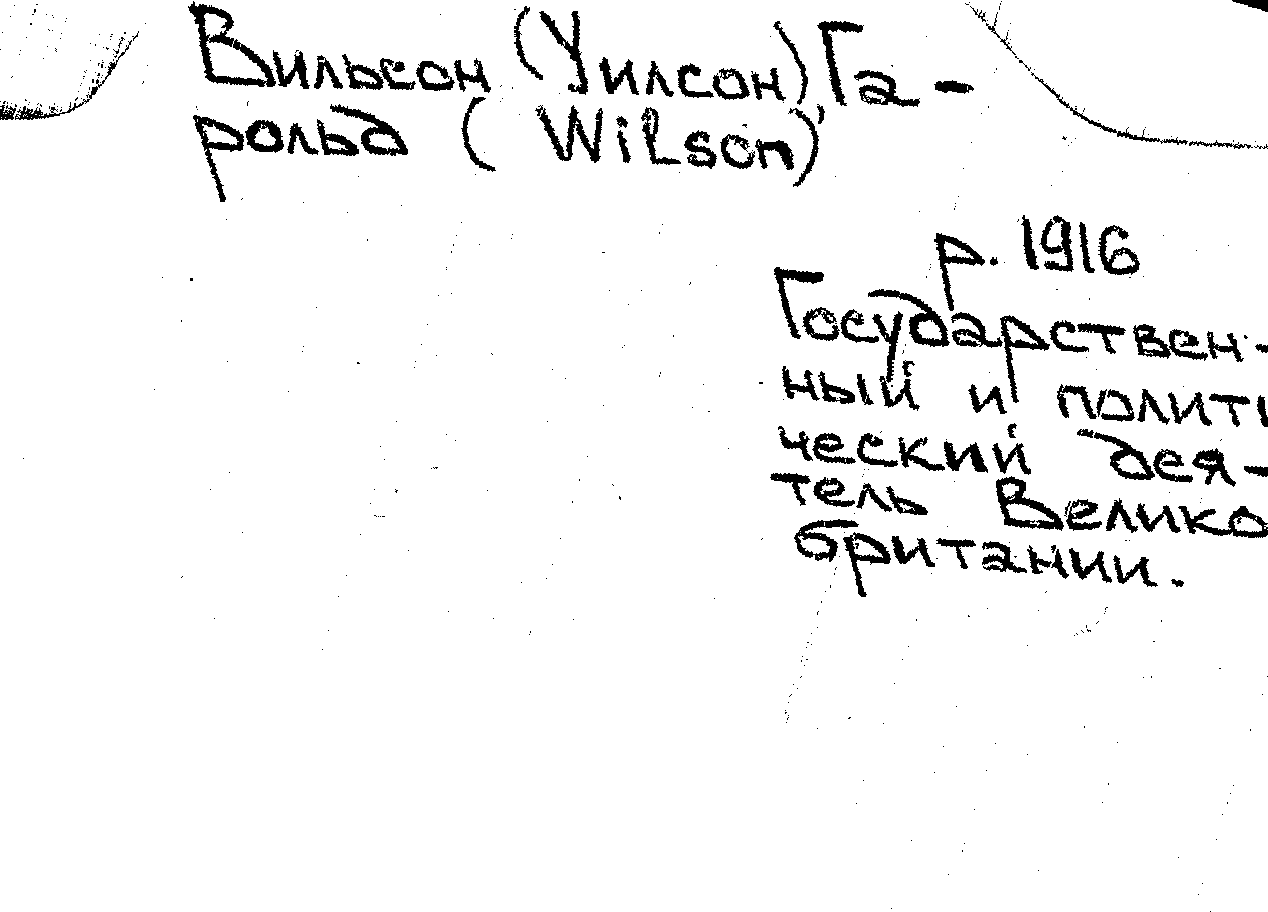 Вильсон (Уилсон), Га-
рольд (Wilson)
р. 1916
Государствен-
ный и полити
ческий дея-
тель Велико
британии.